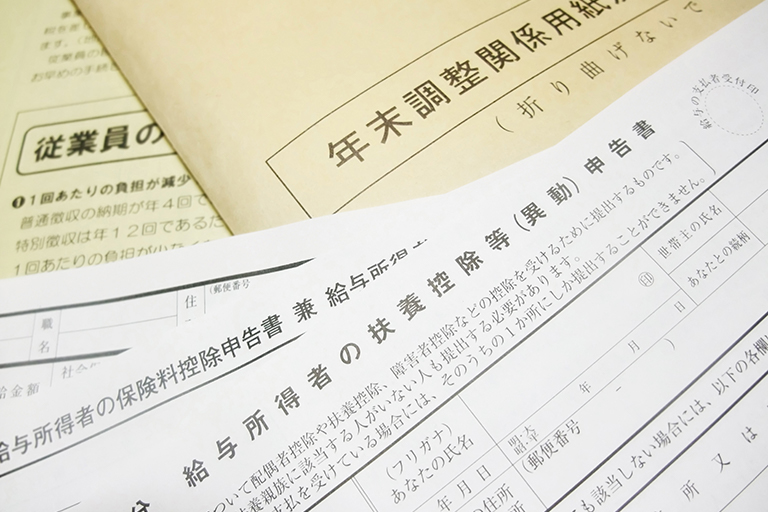 ます。
従業員の
お早めの手続
従業員の
❶1回あたりの負担が減少
普通徴収の納期が年4回で
特別徴収は年12回であるた
1回あたりの負担が少なく
年末調整関係用紙
(折り曲げないで
給与の支払者受付印
給与所得者の扶養控除等(異動)申告書
ついて配偶者控除や扶養控除、障害者控除などの控除を受けるために提出するものです。
扶養親族に該当する人がいない人も提出する必要があります。
支払を受けている場合には、そのうちの1か所にしか提出することができません。
世帯主の氏名
あなたとの続柄
(フリガナ)
あなたの氏名
印
年 月 日
郵便番号
の住所
年 月 日
(郵便番号 － )
も該当しない場合には、以下の各欄
所 又 は
給与所得者の保険料控除申告書 兼 給与所得者
職
名
住
給金額